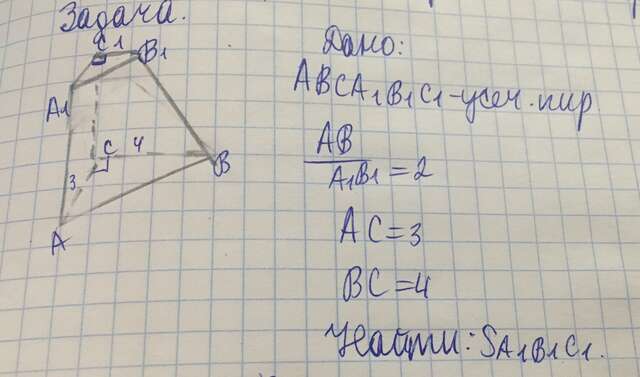 Задача.
C1
B1
A1
C 4
3
B
A
Дано:
ABCA1B1C1-усеч. пир.
AB
A1B1 = 2
AC=3
BC=4
Найти: SA1B1C1.